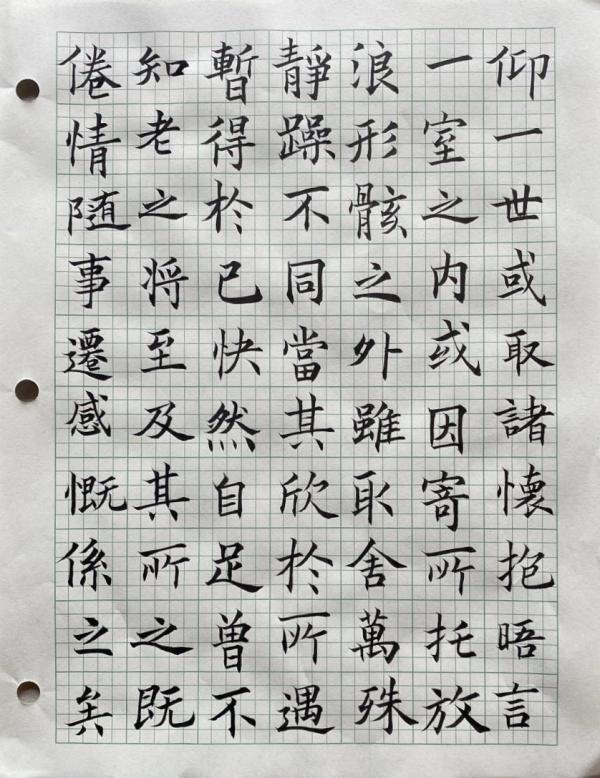 仰一世或取諸懷抱晤言
一室之内或因寄所托放
浪形骸之外雖取舍萬殊
靜躁不同當其欣於所遇
暫得於己快然自足曾不
知老之将至及其所之既
倦情随事遷感慨係之矣